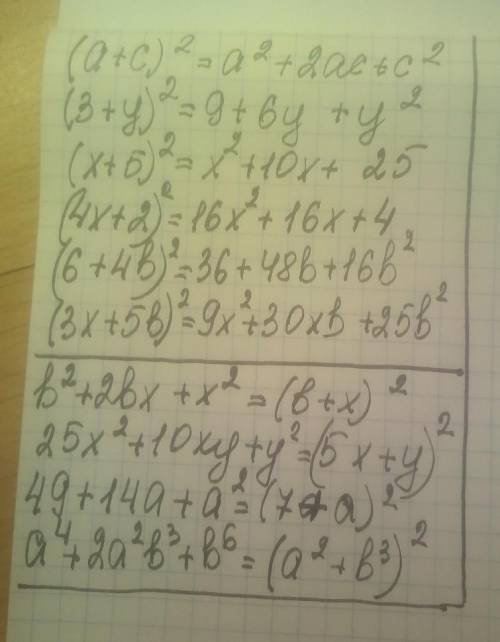 (a+c)² = a² + 2ac + c²
(3+y)² = 9 + 6y + y²
(x+5)² = x² + 10x + 25
(4x+2)² = 16x² + 16x + 4
(6+4b)² = 36 + 48b + 16b²
(3x+5b)² = 9x² + 30xb + 25b²
b² + 2bx + x² = (b+x)²
25x² + 10xy + y² = (5x+y)²
49 + 14a + a² = (7+a)²
a⁴ + 2a²b³ + b⁶ = (a² + b³)²